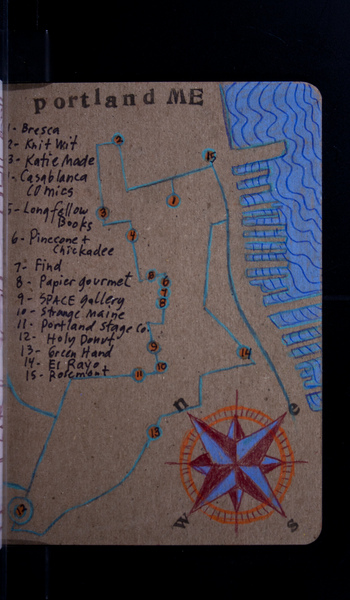 portland ME
1- Bresca
2- Knit Wit
3- Katie Made
- Casablanca
Comics
5- Longfellow
Books
6- Pinecone +
Chickadee
7- Find
8- Papier gourmet
9- SPACE gallery
10- Strange Maine
11- Portland Stage Co.
12- Holy Donut
13- Green Hand
14- El Rayo
15- Rosemont
2
15
1
3
4
5
6
7
8
9
10
11
14
13
12
n
e
w
s